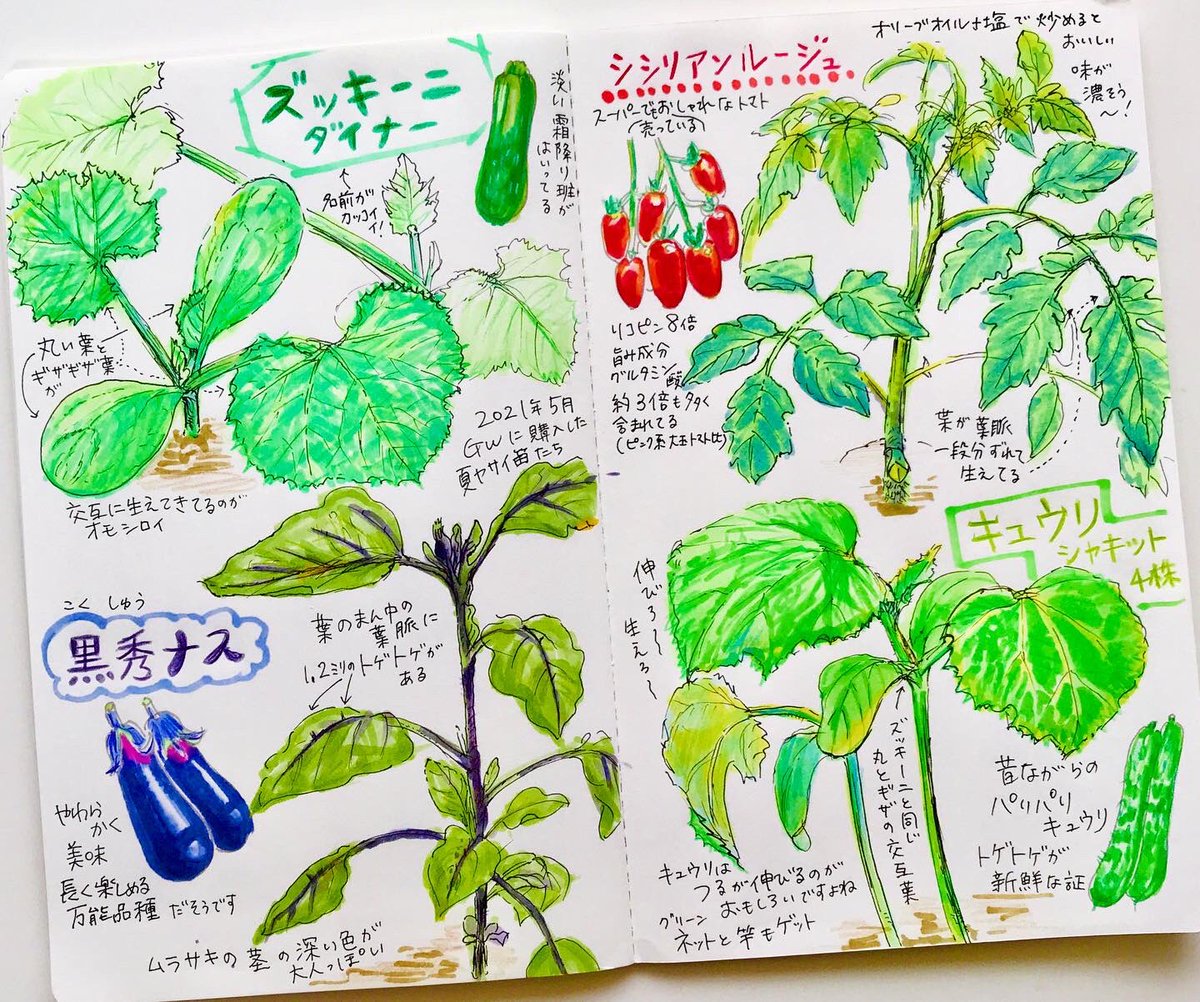 ズッキーニ
ダイナー
淡い霜降り斑が
はいってる
名前が
カッコイイ!
丸い葉と
ギザギザ葉
が
交互に生えてきてるのが
オモシロイ
2021年5月
GWに購入した
夏ヤサイ苗たち
こくしゅう
黒秀ナス
やわらかく
美味
長く楽しめる
万能品種だそうです
葉のまん中の
葉脈に
1,2ミリのトゲトゲが
ある
ムラサキの茎の深い色が
大人っぽい
シシリアンルージュ
スーパーでもおしゃれなトマト
(売っている)
オリーブオイル+塩で炒めると
おいしい
味が
濃そう
〜!
リコピン8倍
旨み成分
グルタミン酸
約3倍も多く
含まれてる
(ピンク系大玉トマト比)
葉が葉脈
一段分ずれて
生えてる
キュウリ
シャキット
4株
伸びろ〜〜
生えろ〜〜
ズッキーニと同じ
丸とギザの交互葉
昔ながらの
パリパリ
キュウリ
トゲトゲが
新鮮な証
キュウリは
つるが伸びるのが
おもしろいですよね
グリーン
ネットと竿もゲット